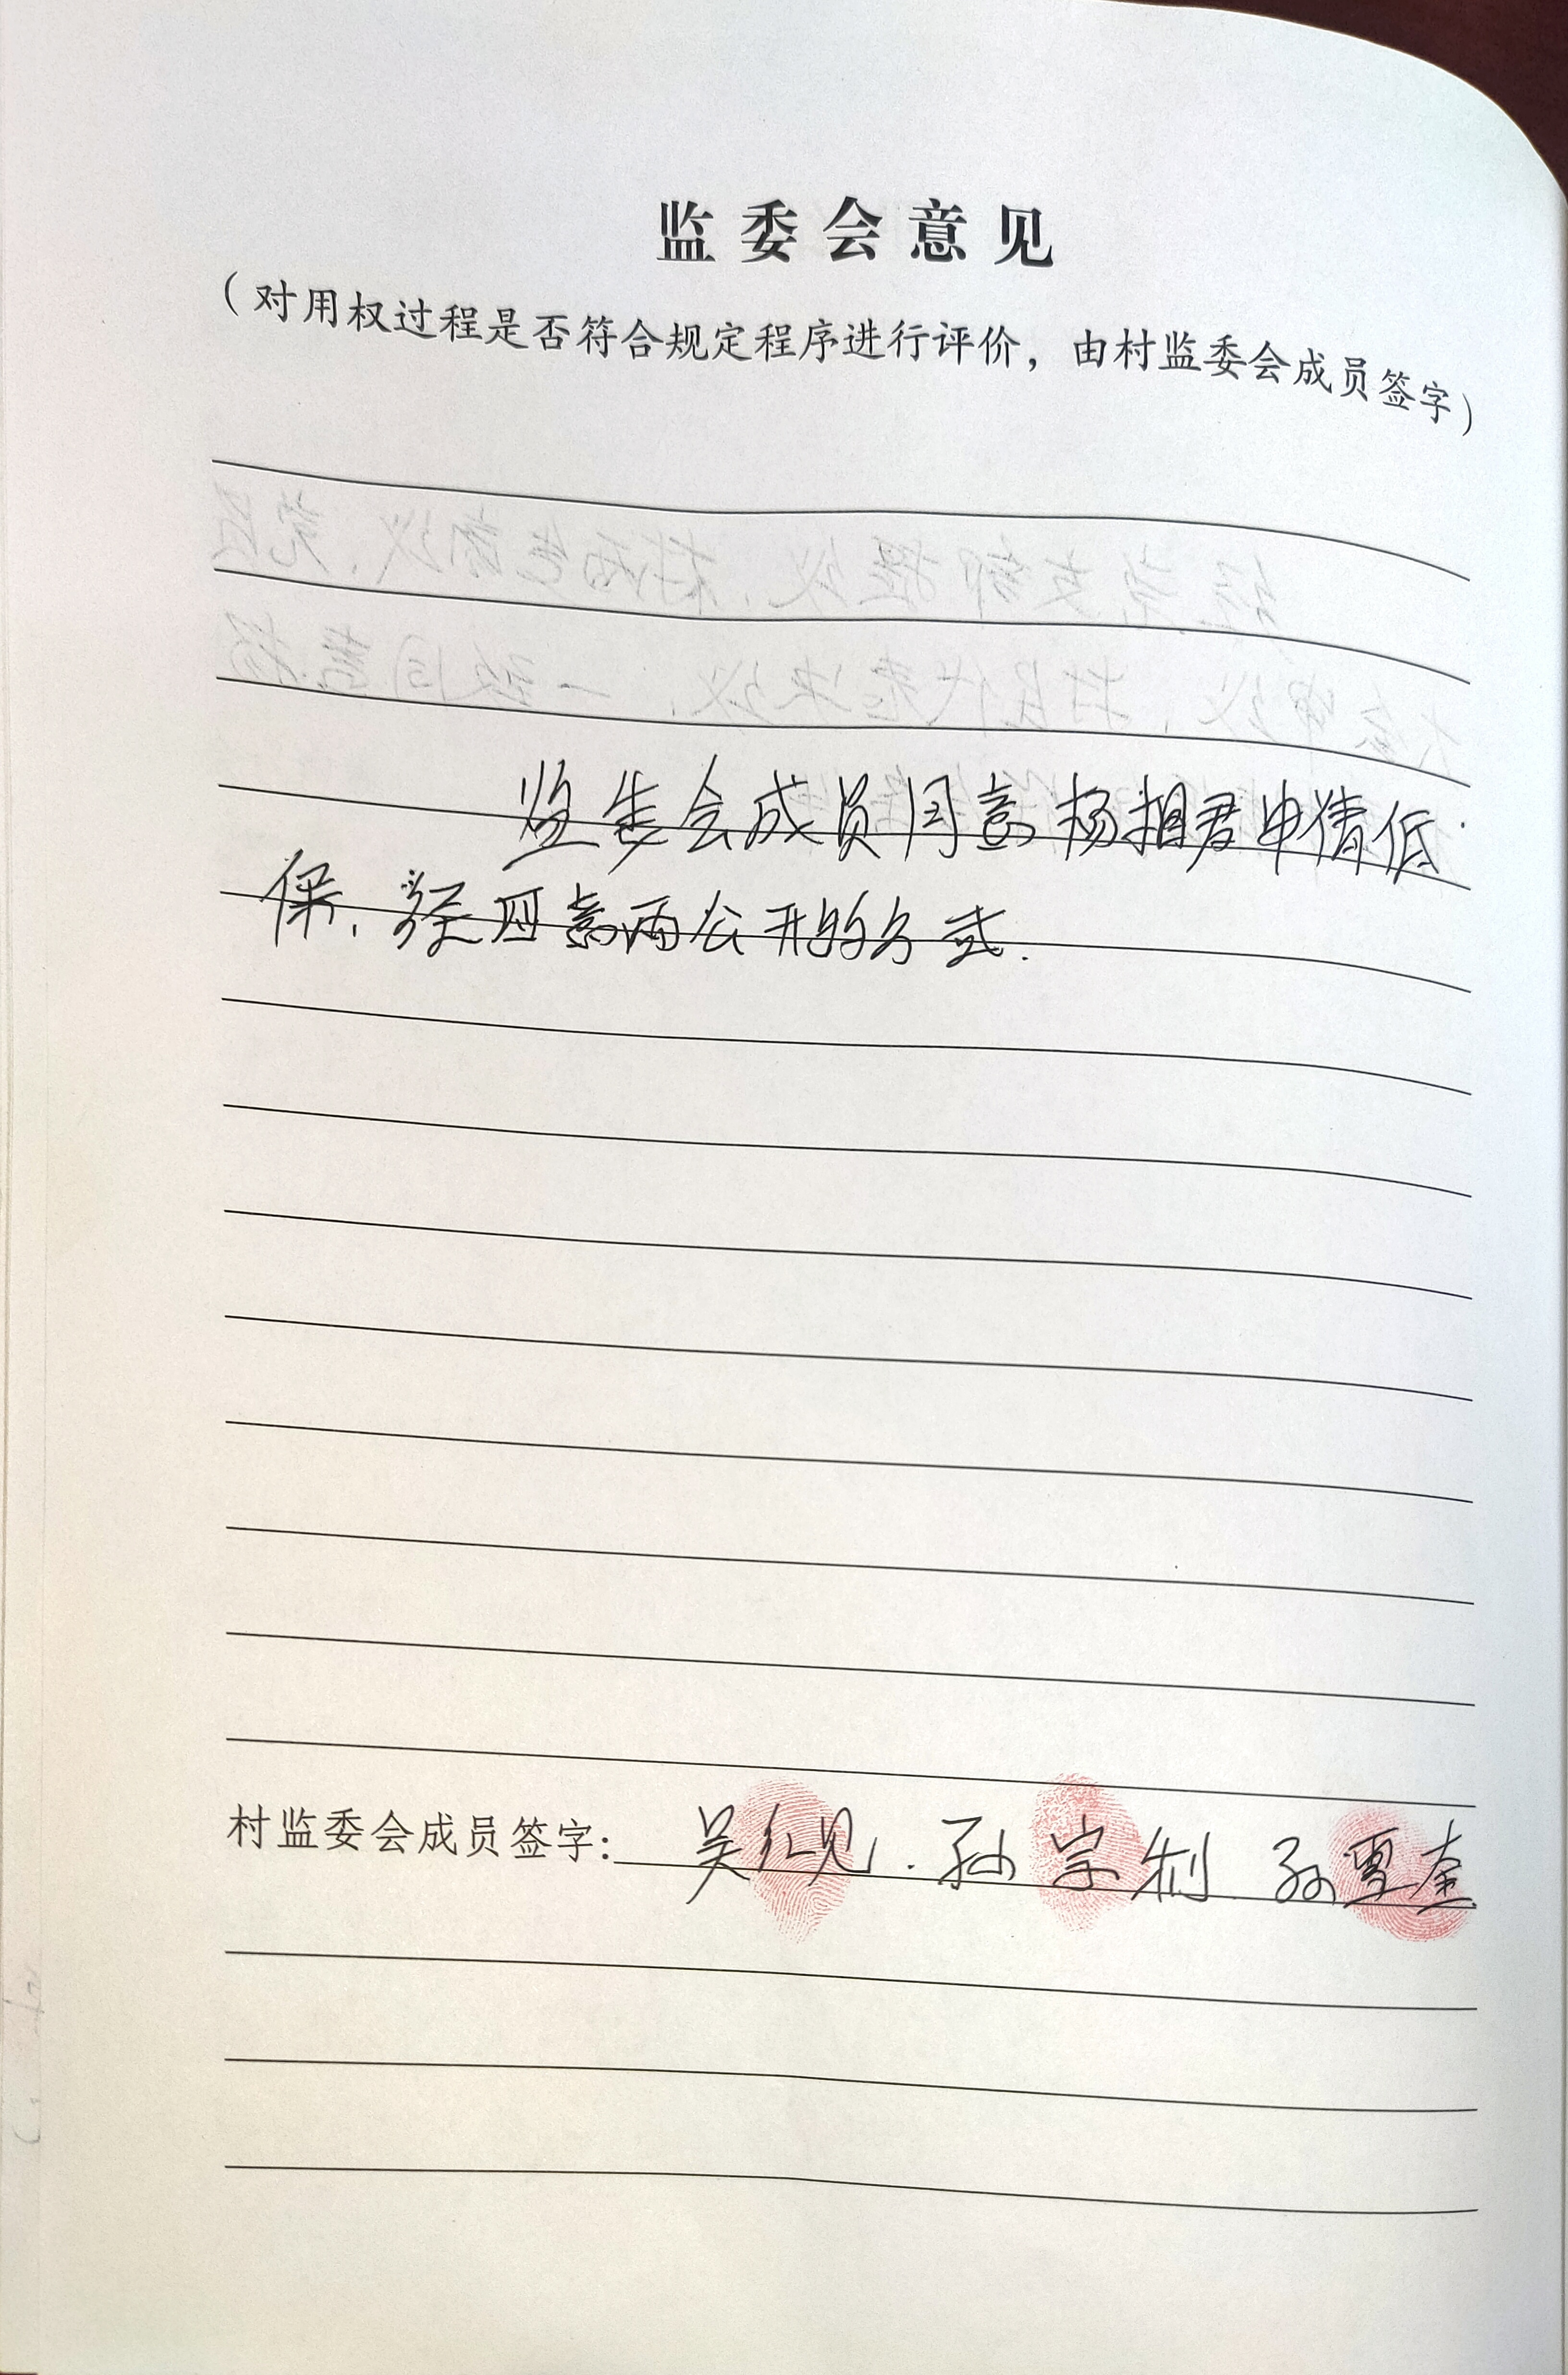 监委会意见
（对用权过程是否符合规定程序进行评价，由村监委会成员签字）
监委会成员同意杨相君申请低
保，经四意两公开的方式.
村监委会成员签字：吴红见. 孙宗利 孙雪奎